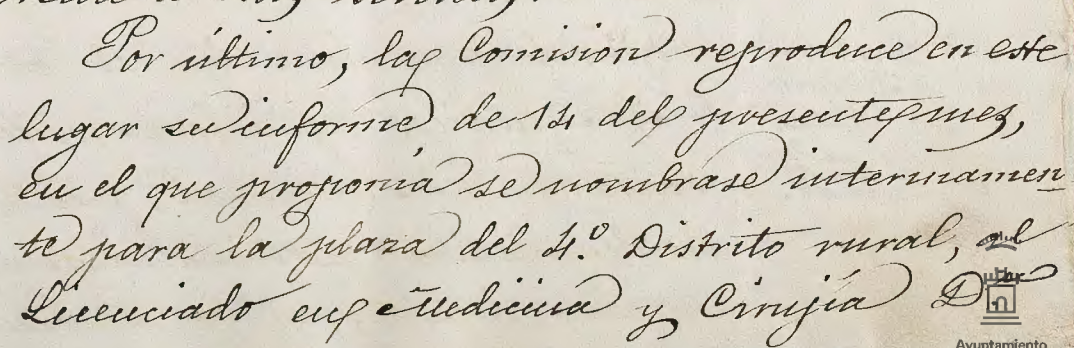 Por último, la Comision reproduce en este
lugar su informe de 14 del presente mes,
en el que proponia se nombrase interinamen-
te para la plaza del 4.º Distrito rural, al
Licenciado en Medicina y Cirujía D.
Ayuntamiento